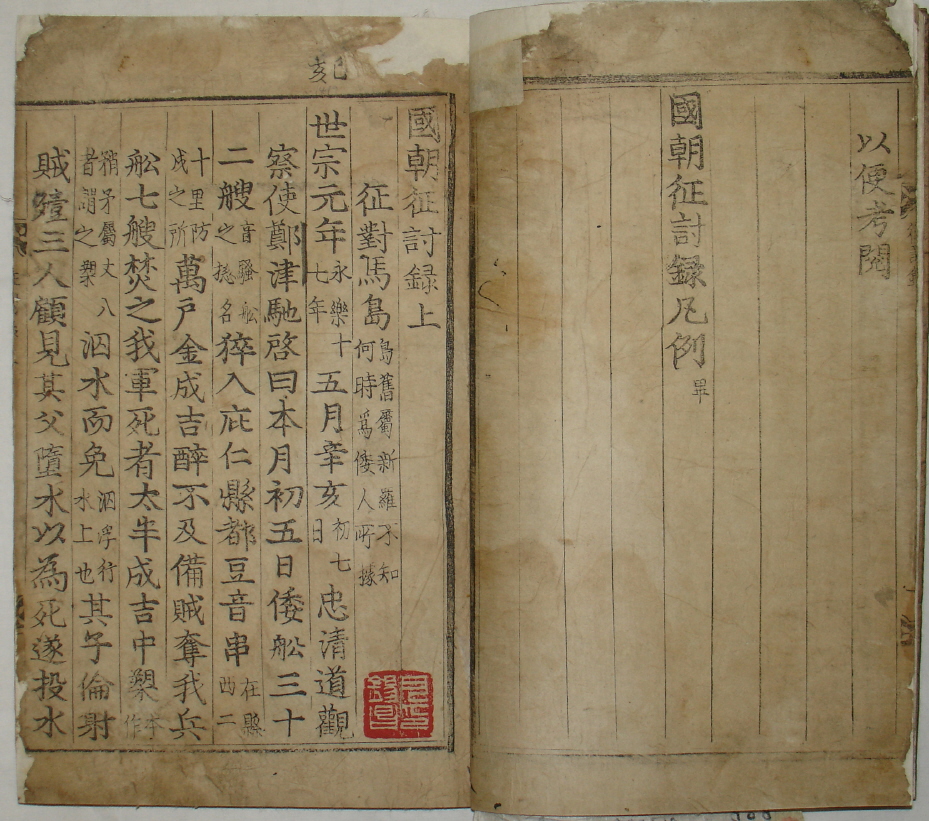 以便考閱
國朝征討録凡例畢
己亥
國朝征討録上
征對馬島島舊屬新羅不知何時爲倭人所據
世宗元年永樂十七年五月辛亥初七日忠清道觀
察使鄭津馳啓曰本月初五日倭舩三十
二艘音騷舩之捴名猝入庇仁縣都豆音串在縣西二
十里防戍之所萬戶金成吉醉不及備賊奪我兵
舩七艘焚之我軍死者太半成吉中槊本作
矟矛屬丈八者謂之槊泅水而免泅浮行水上也其子倫射
賊殪三人顧見其父墮水以為死遂投水